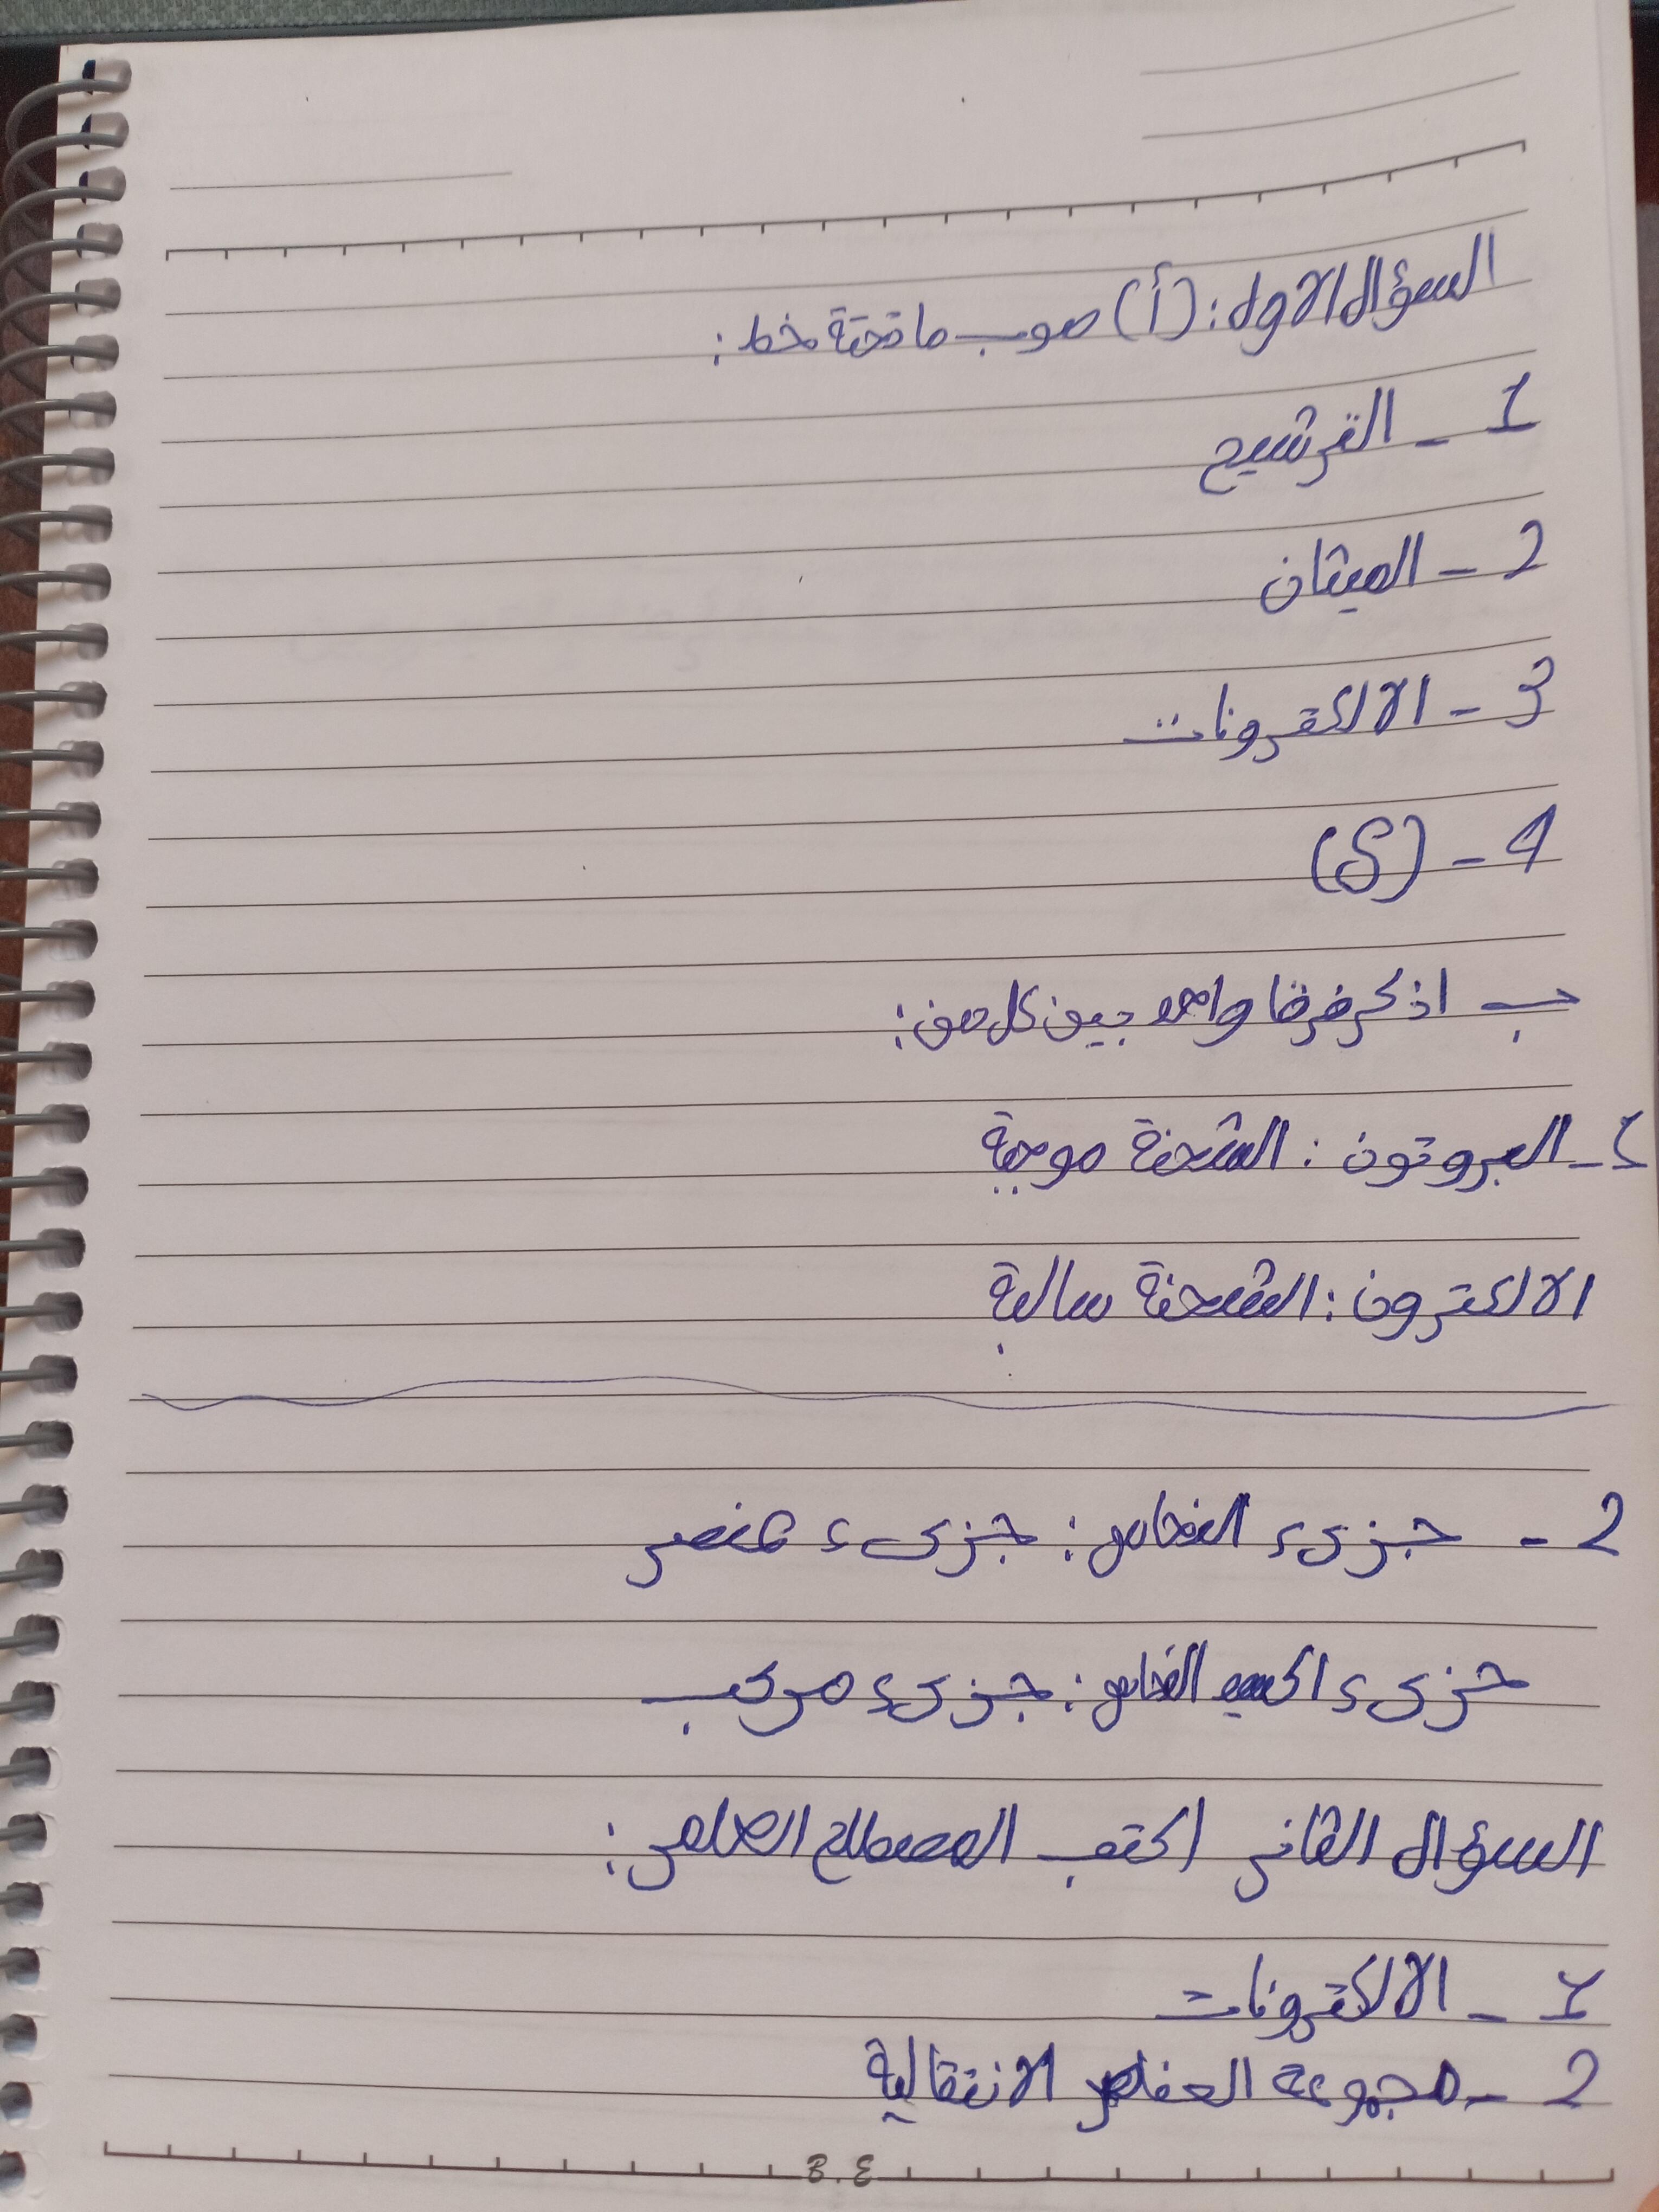 السؤال الاول: (أ) صوب ما تحتة خط:
1 - الترشيح
2 - الميثان
3 - الالكترونات
4 - (S)
ب اذكر فرقا واحد بين كل من:
1 - البروتون: الشحنة موجبة
الالكترون: الشحنة سالبة
2 - جزىء النحاس: جزىء عنصر
جزىء اكسيد النحاس: جزىء مركب
السؤال الثانى اكتب المصطلح العلمى:
1 - الالكترونات
2 - مجموعة العناصر الانتقالية
B.E